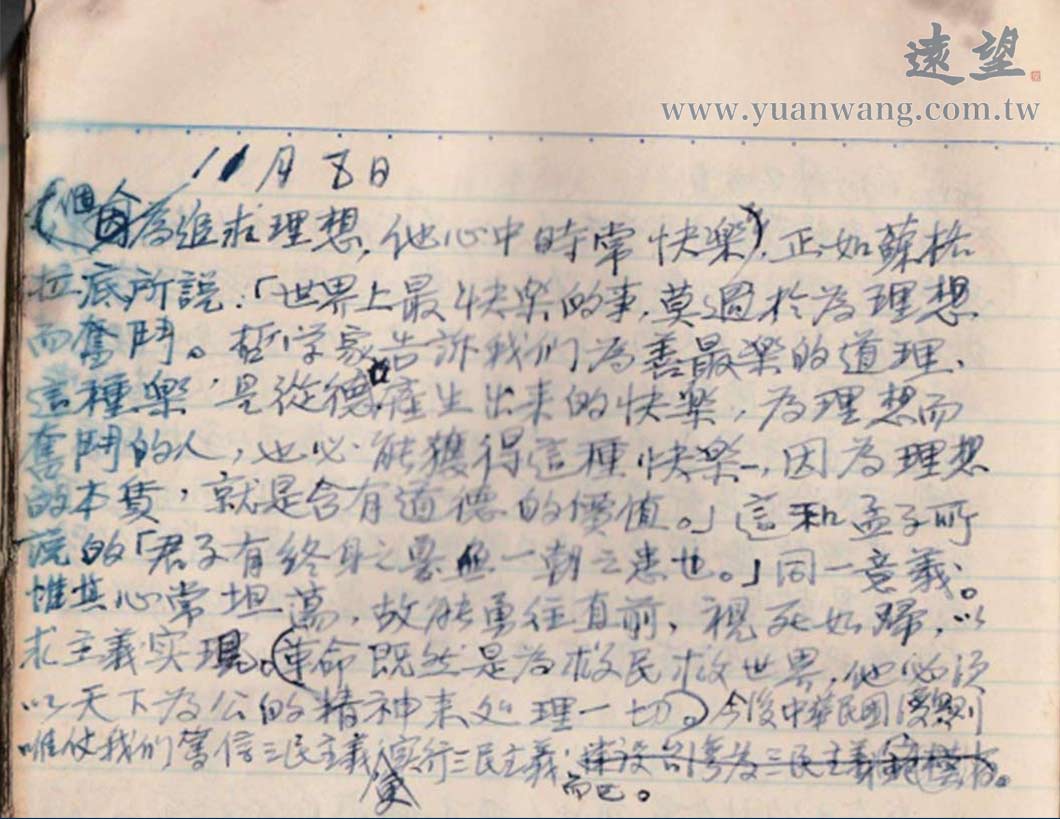 遠望
www.yuanwang.com.tw
11月8日
個人為追求理想，他心中時常快樂，正如蘇格
拉底所說：「世界上最快樂的事，莫過於為理想
而奮鬥。哲学家告訴我们為善最樂的道理，
這種樂，是從德產生出来的快樂，為理想而
奮鬥的人，也必能獲得這種快樂，因為理想
的本質，就是含有道德的價值。」這和孟子所
說的「君子有終身之憂無一朝之患也。」同一意義。
惟其心常坦蕩，故能勇往直前，視死如歸，以
求主義实現。革命既然是為救民救世界，他必須
以天下為公的精神来处理一切。今後中華民國
唯使我们篤信三民主義，实行三民主義，建设台湾為三民主義模
而已。